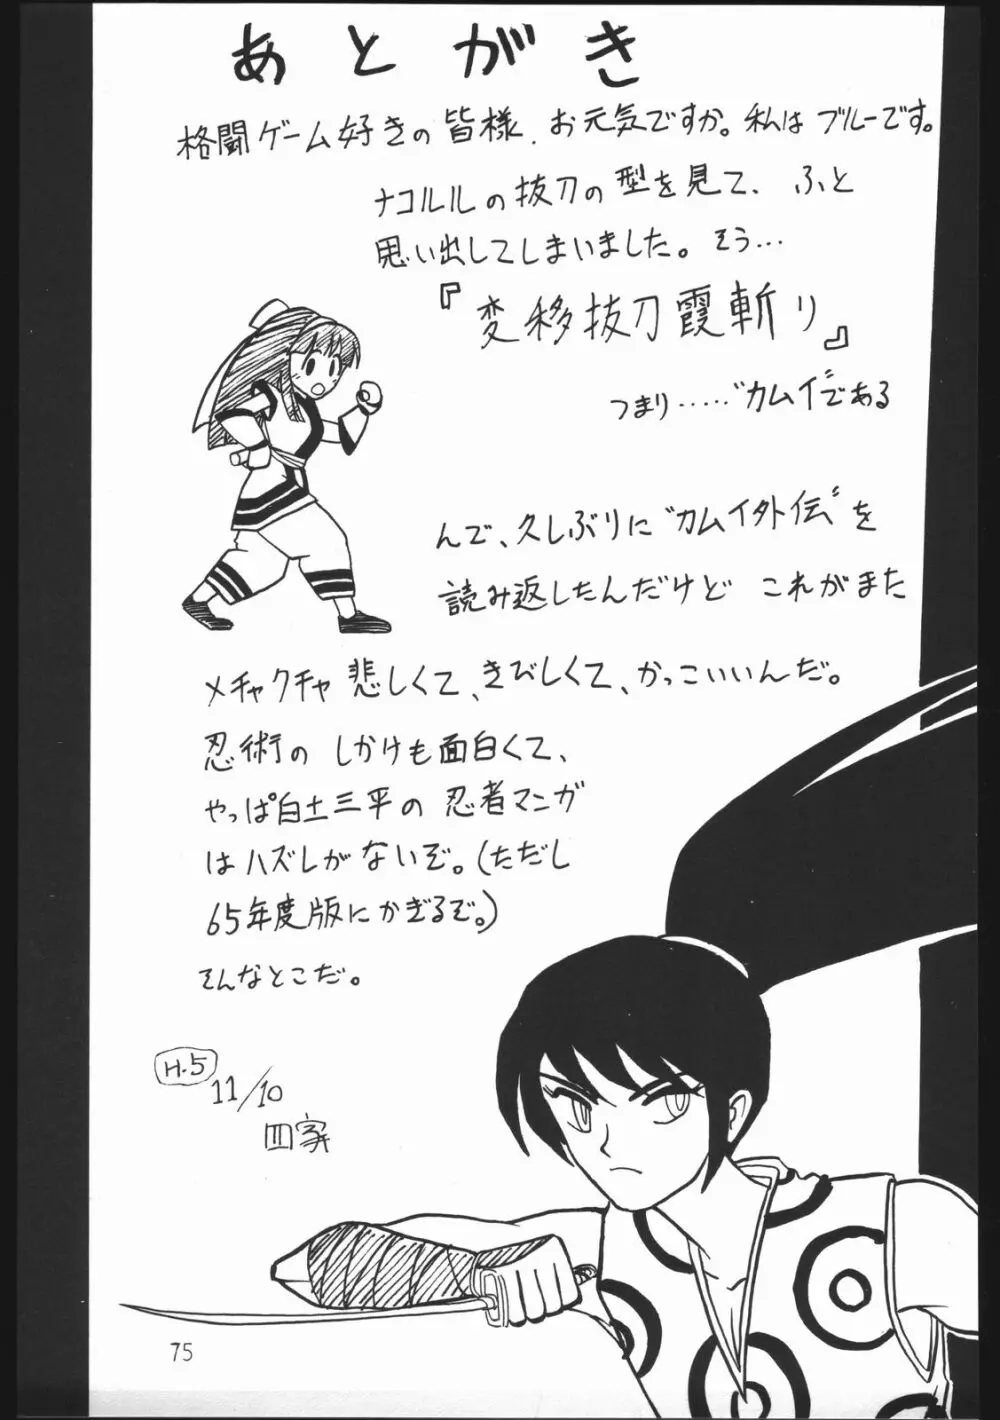 あとがき
格闘ゲーム好きの皆様、お元気ですか。私はブルーです。
ナコルルの抜刀の型を見て、ふと
思い出してしまいました。そう…
『変移抜刀霞斬り』
つまり……"カムイ"である
んで、久しぶりに"カムイ外伝"を
読み返したんだけど これがまた
メチャクチャ悲しくて、きびしくて、かっこいいんだ。
忍術の しかけも面白くて、
やっぱ白土三平の忍者マンガ
はハズレがないぞ。(ただし
65年度版にかぎるぞ。)
そんなとこだ。
H.5
11/10
四家
75